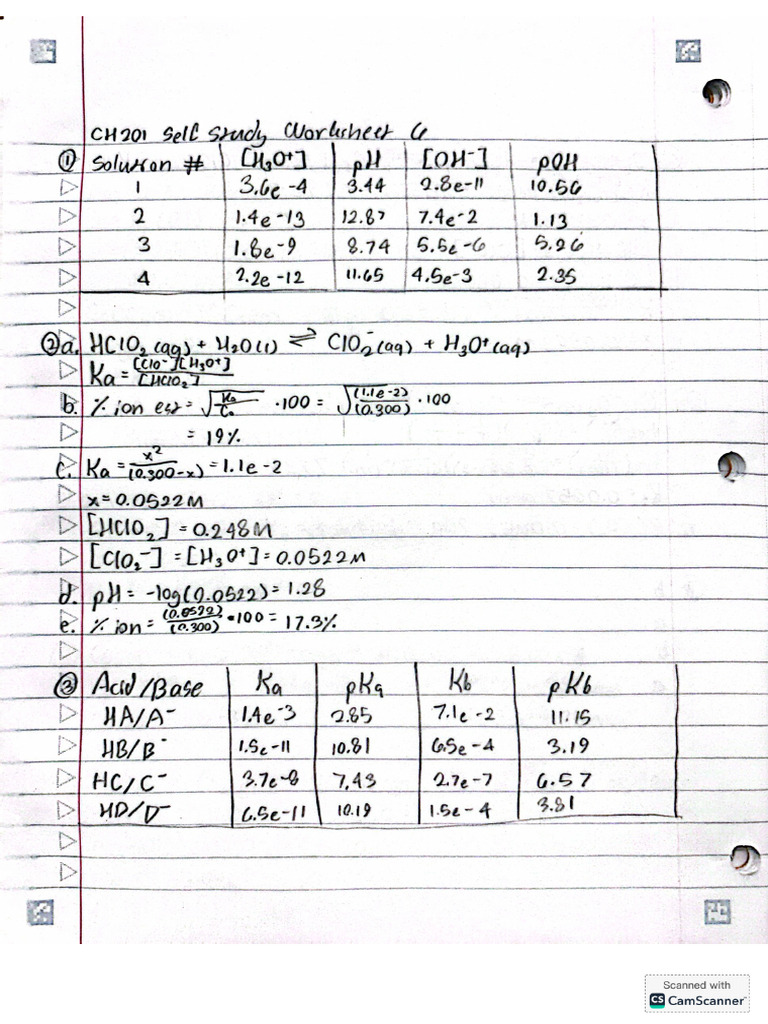 CH201 Self Study Worksheet 6
① Solution # [H₃O⁺] pH [OH⁻] pOH
1 3.6e-4 3.44 2.8e-11 10.56
2 1.4e-13 12.87 7.4e-2 1.13
3 1.8e-9 8.74 5.5e-6 5.26
4 2.2e-12 11.65 4.5e-3 2.35
②a. HClO₂(aq) + H₂O(l) ⇌ ClO₂⁻(aq) + H₃O⁺(aq)
Ka = [ClO⁻][H₃O⁺]/[HClO₂]
b. % ion est = √(Ka/C₀) · 100 = √((1.1e-2)/(0.300)) · 100
= 19%
c. Ka = x²/(0.300-x) = 1.1e-2
x = 0.0522M
[HClO₂] = 0.248M
[ClO₂⁻] = [H₃O⁺] = 0.0522M
d. pH = -log(0.0522) = 1.28
e. % ion = (0.0522)/(0.300) · 100 = 17.3%
③ Acid/Base Ka pKa Kb pKb
HA/A⁻ 1.4e-3 2.85 7.1e-2 11.15
HB/B⁻ 1.5e-11 10.81 6.5e-4 3.19
HC/C⁻ 3.7e-8 7.43 2.7e-7 6.57
HD/D⁻ 6.5e-11 10.19 1.5e-4 3.81
Scanned with
CS CamScanner